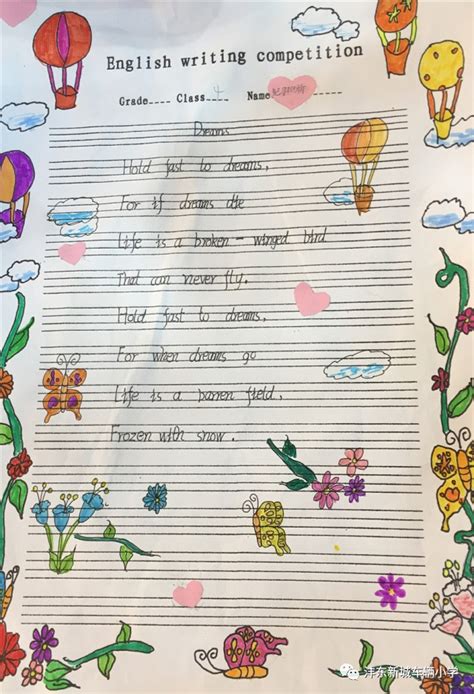 English writing competition
Grade---- Class---- Name
Dreams
Hold fast to dreams,
For if dreams die
Life is a broken - winged bird
That can never fly.
Hold fast to dreams,
For when dreams go
Life is a barren field,
Frozen with snow.
沣东新城车辆小学